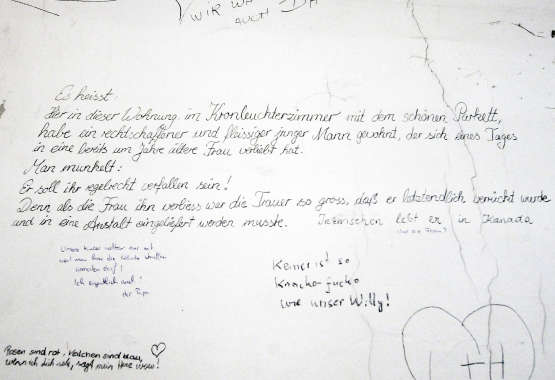 WIR WA
AUCH DA
Es heisst:
Hier in dieser Wohnung, im Kronleuchterzimmer mit dem schönen Parkett,
habe ein rechtschaffener und fleissiger junger Mann gewohnt, der sich eines Tages
in eine bereits um Jahre ältere Frau verliebt hat.
Man munkelt:
Er soll ihr regelrecht verfallen sein!
Denn als die Frau ihn verliess war die Trauer so gross, daß er letztendlich verrückt wurde
und in eine Anstalt eingeliefert werden musste. Inzwischen lebt er in Kanada
Und die Frau?
Unsere Kinder wollten nur mit
weil man hier die Wände
bemalen darf!
Ich eigentlich auch!
der Papa
Keiner ist so
Knacke-fucko
wie unser Willy!
Rosen sind rot, Veilchen sind blau,
wenn ich dich seh, sagt mein Herz wow!
L + H